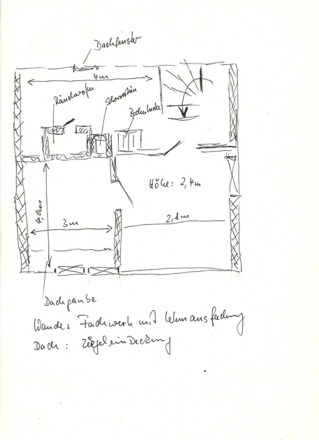 Dachfenster
4m
Räucherofen
Schornstein
Höhe: 2,4m
3m
2,8m
Dachgaube
Wände: Fachwerk mit Lehmausfachung
Dach: Ziegeleindeckung